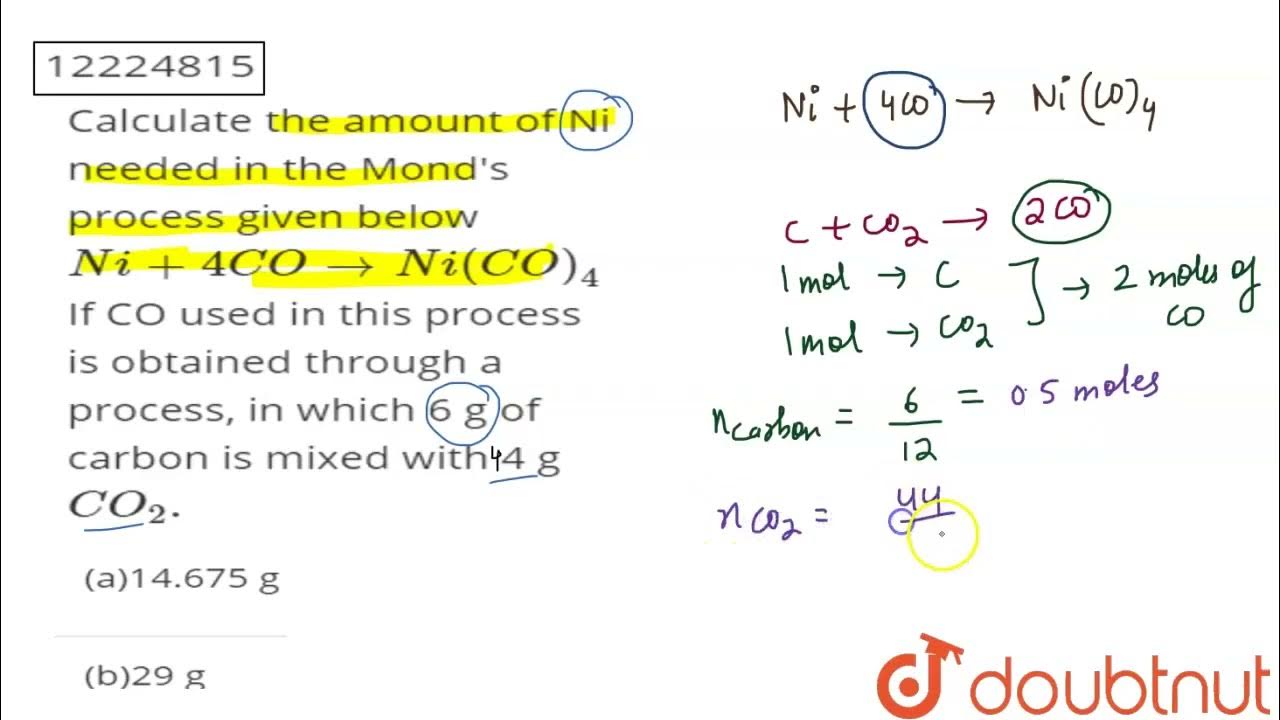 12224815
Calculate the amount of Ni
needed in the Mond's
process given below
Ni + 4CO → Ni(CO)₄
If CO used in this process
is obtained through a
process, in which 6 g of
carbon is mixed with 44 g
CO₂.
(a)14.675 g
(b)29 g
Ni + 4CO → Ni(CO)₄
C + CO₂ → 2CO
1mol → C
1mol → CO₂
→ 2 moles of
CO
n carbon = 6/12 = 0.5 moles
n CO₂ = 44
doubtnut